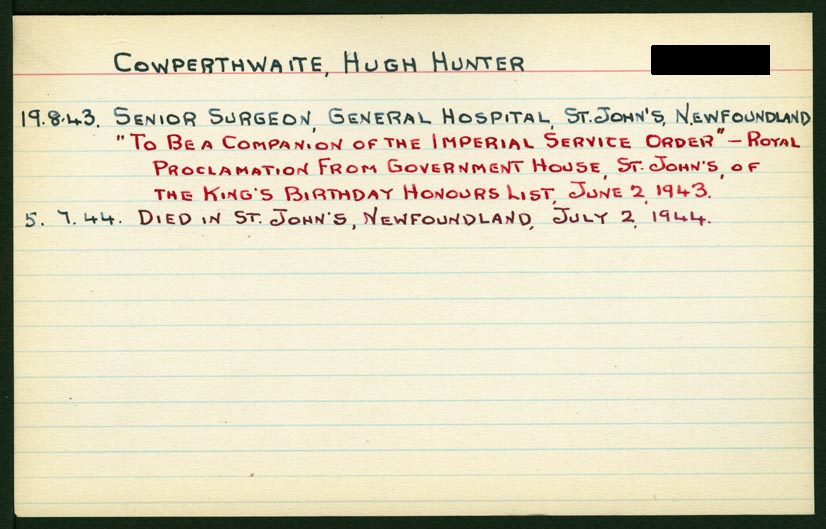 COWPERTHWAITE, HUGH HUNTER
19.8.43. SENIOR SURGEON, GENERAL HOSPITAL, ST. JOHN'S, NEWFOUNDLAND
"TO BE A COMPANION OF THE IMPERIAL SERVICE ORDER" - ROYAL
PROCLAMATION FROM GOVERNMENT HOUSE, ST. JOHN'S, OF
THE KING'S BIRTHDAY HONOURS LIST, JUNE 2, 1943.
5. 7. 44. DIED IN ST. JOHN'S, NEWFOUNDLAND, JULY 2, 1944.